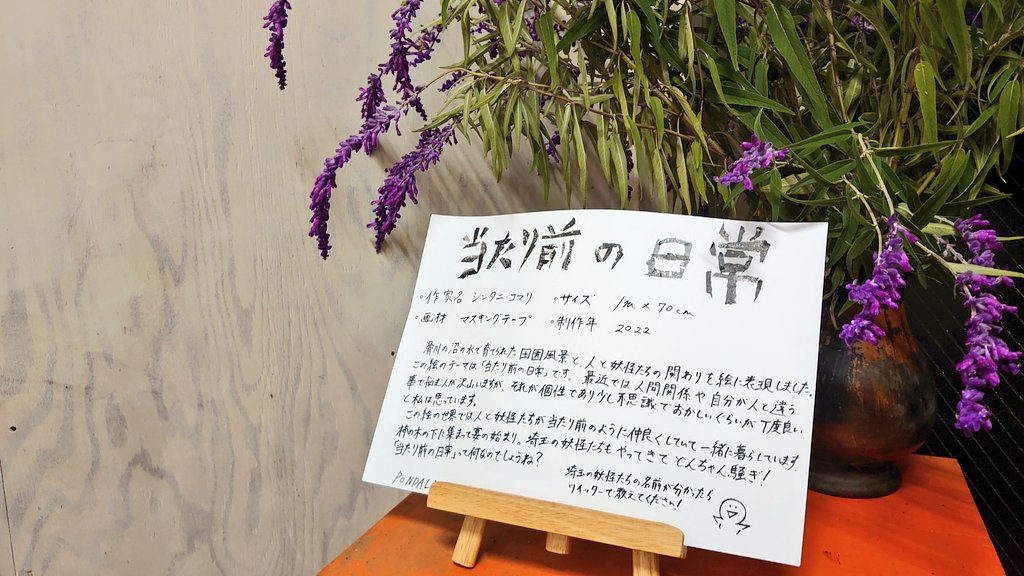 当たり前の日常
・作家名 シンタニ・コマリ ・サイズ 1m × 70cm
・画材 マスキングテープ ・制作年 2022
滑川の沼の水で育てられた田園風景と、人と妖怪たちの関わりを絵に表現しました。
この絵のテーマは「当たり前の日常」です。最近では人間関係や自分が人と違う
事で悩む人が沢山いますが、それが個性であり少し不思議でおかしいぐらいが丁度良い
と私は思っています。
この絵の世界では人と妖怪たちが当たり前のように仲良くしていて一緒に暮らしています。
柿の木の下に集まって宴の始まり。埼玉の妖怪たちもやってきてどんちゃん騒ぎ!
「当たり前の日常」って何なのでしょうね?
埼玉の妖怪たちの名前が分かったら
ツイッターで教えてください!
PONDAL